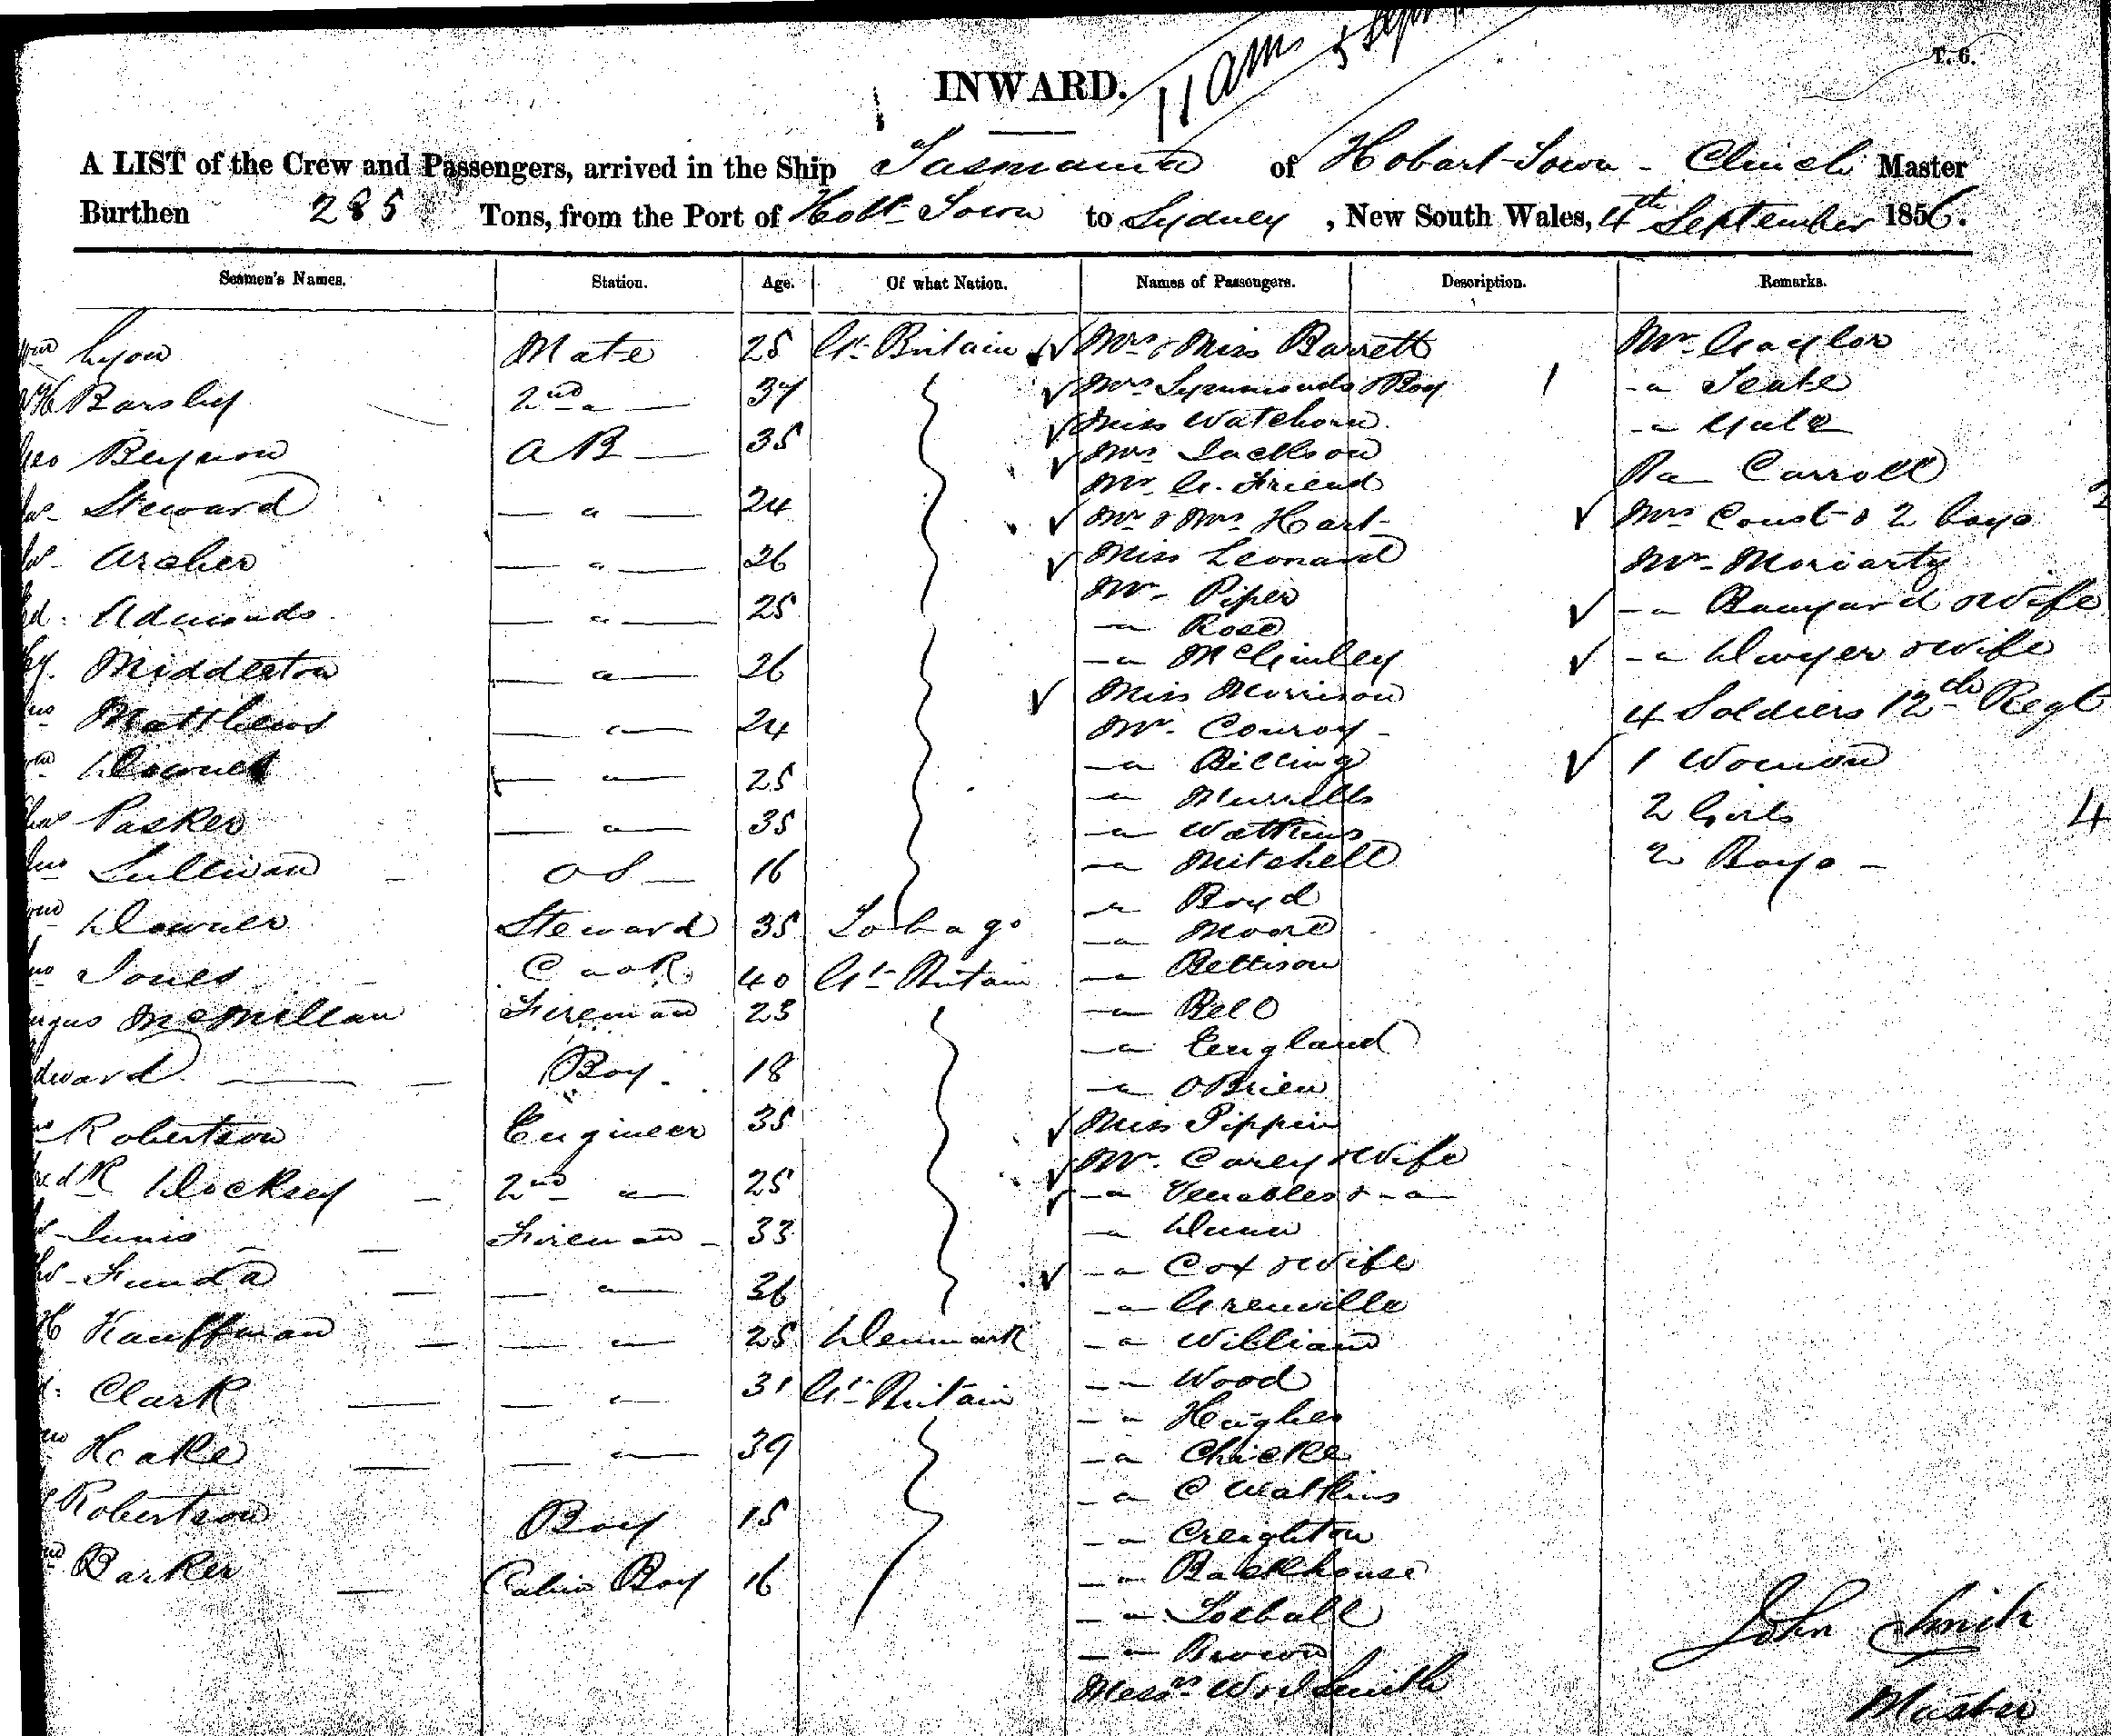 T. 6.
11 am 5 Sep
INWARD.
A LIST of the Crew and Passengers, arrived in the Ship Tasmania of Hobart Town - Clinch Master
Burthen 285 Tons, from the Port of Hobt Town to Sydney, New South Wales, 4th September 1856.
Seamen's Names. Station. Age. Of what Nation. Names of Passengers. Description. Remarks.
Lyon Mate 25 Gt Britain Mrs & Miss Barrett Mr Gaylor
Barsley 2nd 37 Mrs Symmonds & Boy 1 - " Seate
Geo Beynon AB 35 Miss Watchorn - " Yule
Steward " 24 Mrs Jackson Carroll
Archer " 26 Mr G. Friend Mrs Coust & 2 boys
Edmonds " 25 Mr & Mrs Hart Mr Moriarty
Middleton " 26 Miss Leonard - " Bangard & Wife
Matthews " 24 Mr Piper - " Dwyer & Wife
" 25 " Rose 4 Soldiers 12th Regt
Pasker " 35 " McGinley 1 Woman
Sullivan OS 16 Miss Morrison 2 Girls 4
Downer Steward 35 Tobago Mr Conroy 2 Boys
Jones Cook 40 Gt Britain " Billing
McMillan Fireman 23 " Murrells
Edward Boy 18 " Watkins
Robertson Engineer 35 " Mitchell
Docksey 2nd " 25 " Boyd
Innis Fireman 33 " Moore
Funda " 36 " Bettison
H Kauffman " 25 Denmark " Bell
Clark " 31 Gt Britain " England
Hake " 39 " OBrien
Robertson Boy 15 Miss Pippin
Barker Cabin Boy 16 Mr. Carey & Wife
" Venables & "
" Dunn
" Cox & Wife
" Grenville
" William
" Wood
" Hughes
" Chicke
" C Watkins
" Creighton
" Backhouse
" Brown
Messrs W & J Smith
John Clinch
Master